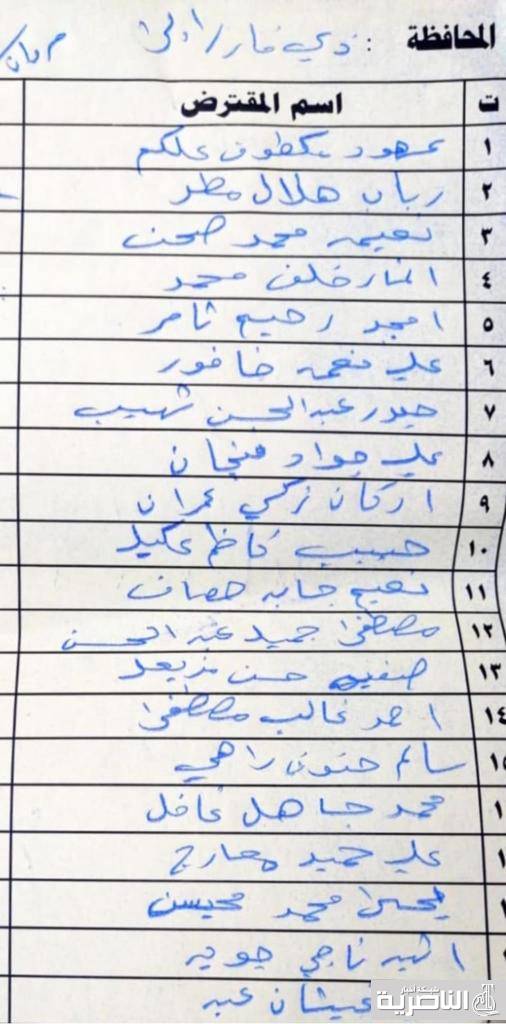 المحافظة : ذي قار / اولى
ت اسم المقترض
١ عهود مكطوف علكم
٢ ربات هلال مطر
٣ نعيمه محمد صحن
٤ خلف محمد
٥ امجد رحيم ثامر
٦ علي نعمه خافور
٧ حيدر عبد الحسن شهيب
٨ علي جواد فنجان
٩ اركان زكي عمران
١٠ حبيب كاظم عكيد
١١ نعيم جابر
١٢ مصطفى حميد عبد الحسن
١٣ صفيه حسن
١٤ احمد غالب مصطفى
١٥ سالم حنون راهي
١ محمد جاهل غافل
١ علي حميد معارج
١ يحيى محمد محيسن
ناجي جويد
عيشان عبد
شبكة اخبار
الناصرية